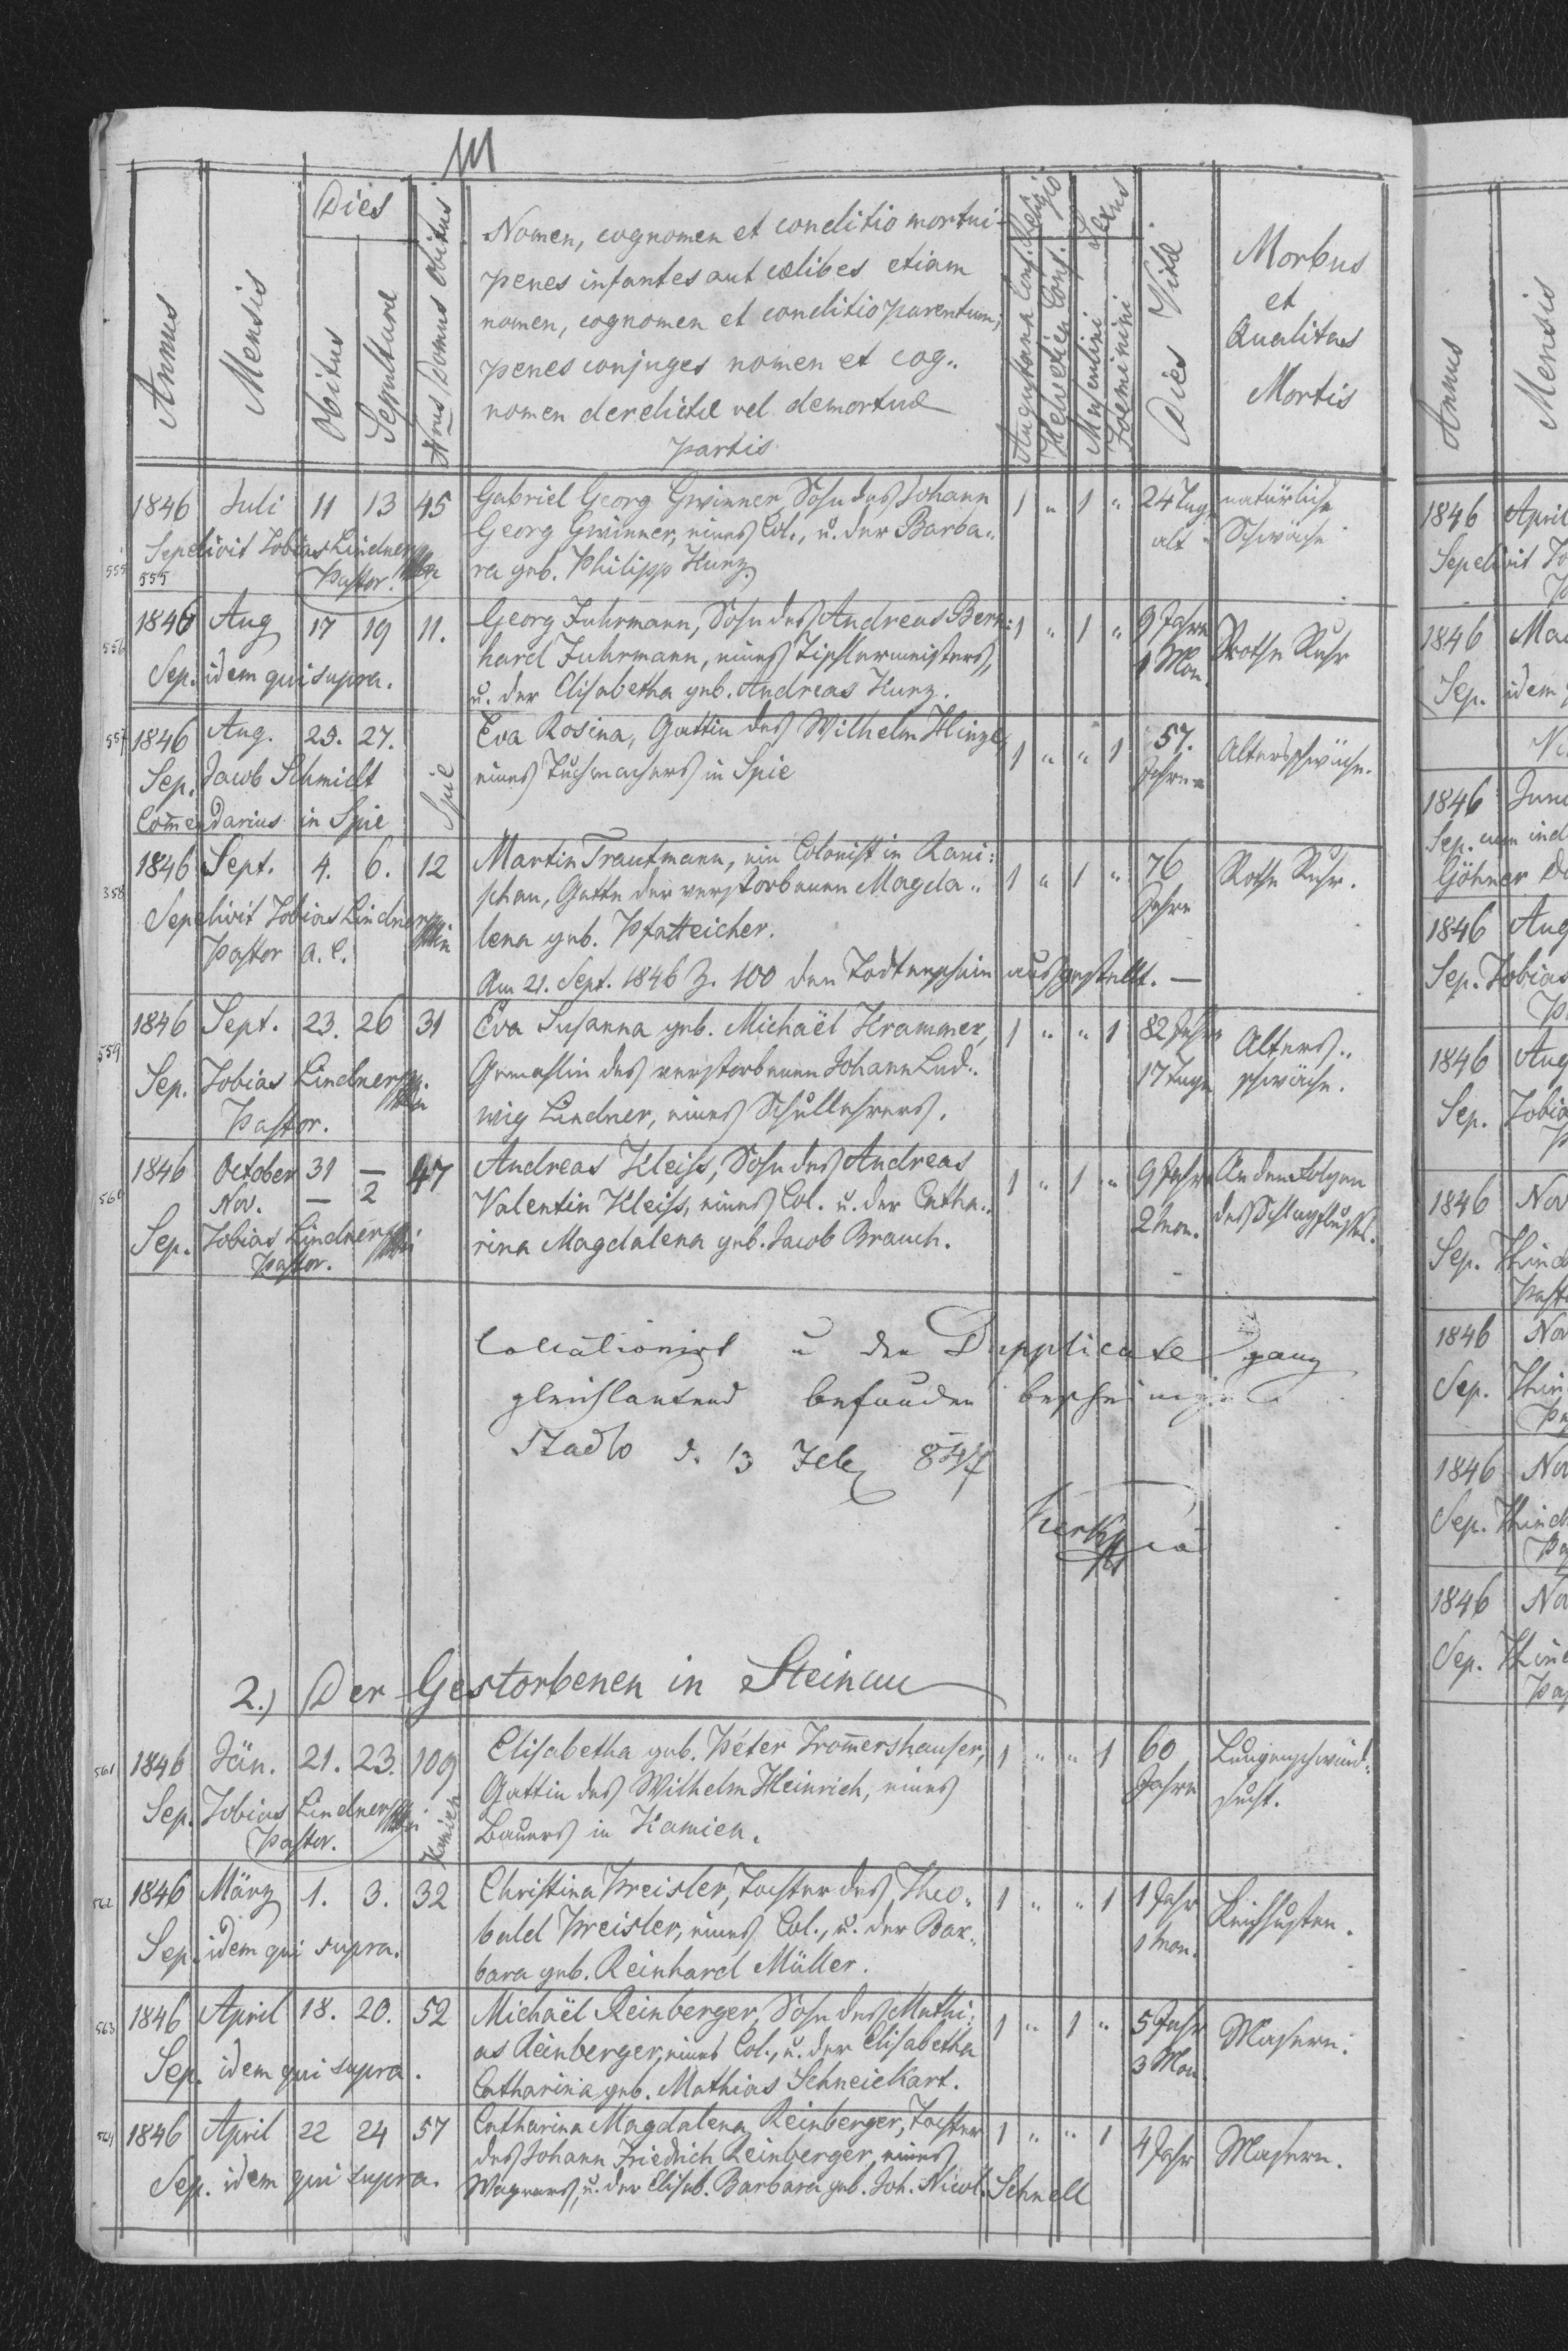 111
Annus
Mensis
Dies
Obitus
Sepulturæ
Nrus Domus Obitus
Nomen, cognomen et conditio mortui
penes infantes aut cælibes etiam
nomen, cognomen et conditio parentum;
penes conjuges nomen et cog-
nomen derelictæ vel demortuæ
partis
Religio
Augustana Conf.
Helvetica Conf.
Sexus
Masculini
Foeminini
Dies Vitæ
Morbus
et
Qualitas
Mortis
1846 Juli 11 13 45 Gabriel Georg Gwinner, Sohn des Johann 1 " 1 " 24 Tage natürliche
Georg Gwinner, eines Col., u. der Barba- alt Schwäche
Sepelivit Tobias Lindner
555 555 Pastor. ra geb. Philipp Kunz.
556 1846 Aug 17 19 11. Georg Fuhrmann, Sohn des Andreas Bern- 1 " 1 " 9 Jahre Rothe Ruhr
hard Fuhrmann, eines Tischlermeisters, 1 Mon.
Sep. idem qui supra. u. der Elisabetha geb. Andreas Kunz.
557 1846 Aug. 25. 27. Spie Eva Rosina, Gattin des Wilhelm Hinze, 1 " " 1 57. Altersschwäche.
Sep. Jacob Schmidt eines Tuchmachers in Spie Jahre
Com̅endarius in Spie
358 1846 Sept. 4. 6. 12 Martin Trautmann, ein Colonist in Rani- 1 " 1 " 76 Rothe Ruhr.
schau, Gatte der verstorbenen Magda- Jahre
Sepelivit Tobias Lindner
Pastor a. C. lena geb. Pfatteicher.
Am 21. Sept. 1846 Z. 100 den Todtenschein ausgestellt. —
559 1846 Sept. 23. 26 31 Eva Susanna geb. Michaël Krammer, 1 " " 1 82 Jahre Alters-
Gemahlin des verstorbenen Johann Lud- 17 Tage schwäche.
Sep. Tobias Lindner
Pastor. wig Lindner, eines Schullehrers.
560 1846 October 31 — 47 Andreas Kleiss, Sohn des Andreas 1 " 1 " 9 Jahre An den Folgen
Nov. — 2 Valentin Kleiss, eines Col. u. der Catha- 2 Mon. des Schlagflusses.
Sep. Tobias Lindner
Pastor. rina Magdalena geb. Jacob Brauch.
Collationirt u den Dupplicate ganz
gleichlautend befunden bescheinigt
Stadło d. 13 Feb 847
2.) Der Gestorbenen in Steinau
561 1846 Jän. 21. 23. 109 Kamien Elisabetha geb. Péter Trom̅ershauser, 1 " " 1 60 Lungenschwind-
Gattin des Wilhelm Heinrich, eines Jahre sucht.
Sep. Tobias Lindner
Pastor. Bauers in Kamien.
562 1846 März 1. 3. 32 Christina Kreisler, Tochter des Theo- 1 " " 1 1 Jahr Keichhusten.
bald Kreisler, eines Col., u. der Bar- 1 Mon.
Sep. idem qui supra. bara geb. Reinhard Müller.
563 1846 April 18. 20. 52 Michaël Reinberger, Sohn des Mathi- 1 " 1 " 5 Jahr Masern.
as Reinberger, eines Col., u. der Elisabetha 3 Mon
Sep. idem qui supra. Catharina geb. Mathias Schneickart.
564 1846 April 22 24 57 Catharina Magdalena Reinberger, Tochter 1 " " 1 4 Jahr Masern.
des Johann Friedrich Reinberger, eines
Sep. idem qui supra. Wagners, u. der Elisab. Barbara geb. Joh. Nicol. Schnell
Annus
Mensis
1846 April
Sepelivit
1846
Sep. idem
1846
Sep.
1846 Aug
Sep. Tobias
1846 Aug
Sep.
1846 Nov
Sep.
1846
Sep.
1846
Sep.
1846
Sep.